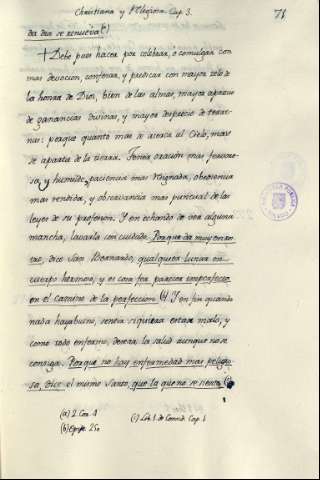 Christiana y Religiosa. Cap. 3.
71
da dia se renueva (a)
+ Debe pues hacer por celebrar, o comulgar con
mas devocion, confesar, y predicar con mayor zelo de
la honra de Dios, bien de las almas, mayor aprecio
de ganancias divinas, y mayor desprecio de terre-
nas: porque quanto mas se acerca al Cielo, mas
se aparta de la tierra. Tenga oracion mas fervoro-
sa, y humilde, paciencia mas resignada, obediencia
mas rendida, y observancia mas puntual de las
leyes de su profesion. Y en echando de ver alguna
mancha, lavarla con cuidado. Porque
dice San Bernardo, qualquiera lunar en
cuerpo hermoso, y es cosa fea parecer imperfecto
en el camino de la perfeccion (b) Y en fin quando
nada haya bueno, sentir siquiera estar malo, y
como todo enfermo, desear la salud aunque no se
consiga. Porque no hay enfermedad mas peligro-
sa, dice el mismo Santo, que la que no se siente (c)
(a) 2. Cor. 4
(b) Epist. 25
(c) Lib. 1. de Consid. Cap. 1